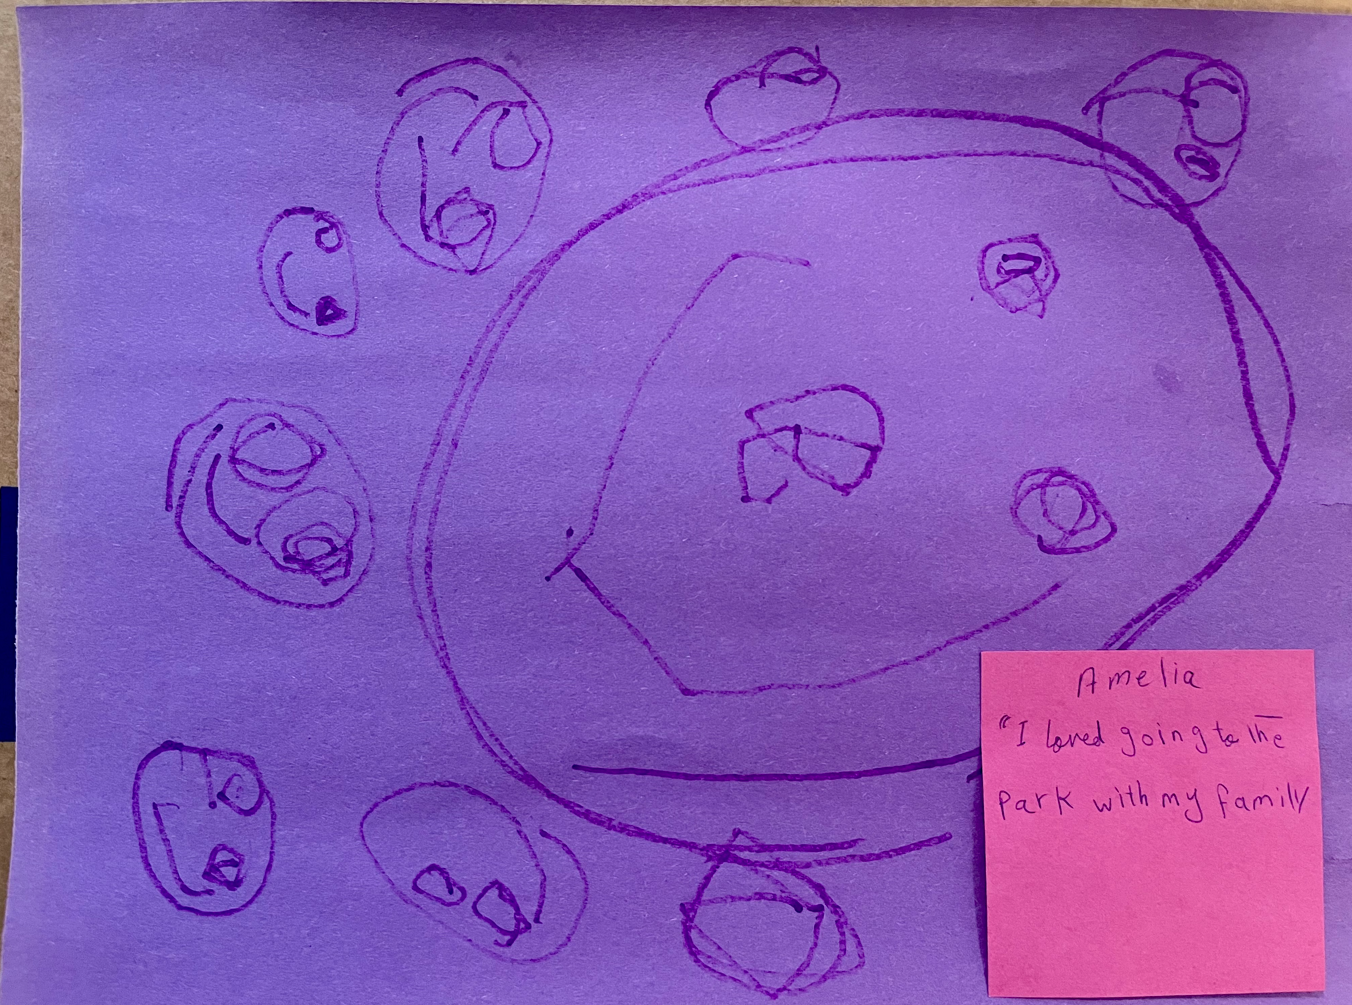 Amelia
"I loved going to the
park with my family